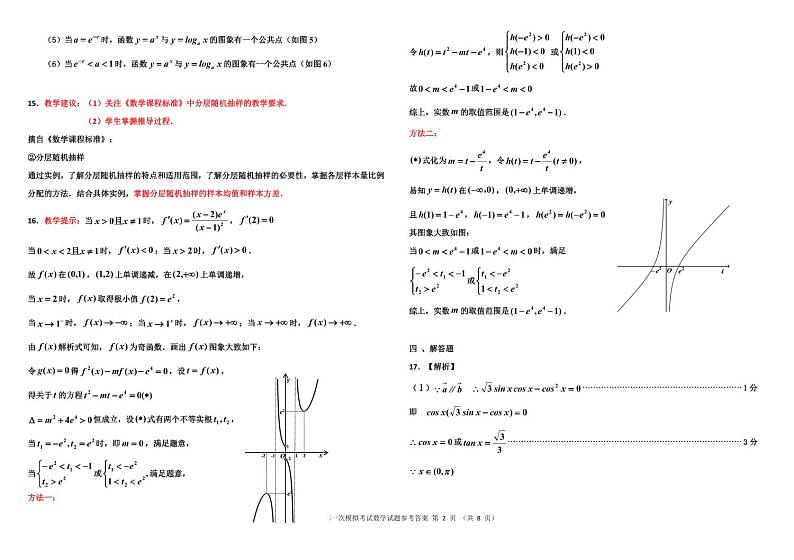 （5）当 a = e^{-e} 时，函数 y = a^x 与 y = log_a x 的图象有一个公共点（如图5）
（6）当 e^{-e} < a < 1 时，函数 y = a^x 与 y = log_a x 的图象有一个公共点（如图6）
15．教学建议：（1）关注《数学课程标准》中分层随机抽样的教学要求．
（2）学生掌握推导过程．
摘自《数学课程标准》：
②分层随机抽样
通过实例，了解分层随机抽样的特点和适用范围，了解分层随机抽样的必要性，掌握各层样本量比例
分配的方法．结合具体实例，掌握分层随机抽样的样本均值和样本方差．
16．教学提示：当 x > 0 且 x ≠ 1 时， f′(x) = (x−2)e^x / (x−1)^2 ， f′(2) = 0
当 0 < x < 2 且 x ≠ 1 时， f′(x) < 0 ；当 x > 2 时， f′(x) > 0 ．
故 f(x) 在 (0,1) ， (1,2) 上单调递减，在 (2,+∞) 上单调递增，
当 x = 2 时， f(x) 取得极小值 f(2) = e^2 ，
当 x → 1^- 时， f(x) → −∞ ；当 x → 1^+ 时， f(x) → +∞ ；当 x → +∞ 时， f(x) → +∞ ．
由 f(x) 解析式可知， f(x) 为奇函数．画出 f(x) 图象大致如下：
令 g(x) = 0 得 f^2(x) − mf(x) − e^4 = 0 ，设 t = f(x) ，
得关于 t 的方程 t^2 − mt − e^4 = 0(*)
Δ = m^2 + 4e^4 > 0 恒成立，设 (*) 式有两个不等实根 t_1, t_2 ，
当 t_1 = −e^2, t_2 = e^2 时，即 m = 0 ，满足题意，
当 { −e^2 < t_1 < −1 , t_2 > e^2 或 { t_1 < −e^2 , 1 < t_2 < e^2 ,满足题意，
方法一：
y
-2 -1 O 1 2 x
令 h(t) = t^2 − mt − e^4 ，则 { h(−e^2) > 0 , h(−1) < 0 , h(e^2) < 0 或 { h(−e^2) < 0 , h(1) < 0 , h(e^2) > 0
故 0 < m < e^4 − 1 或 1 − e^4 < m < 0
综上，实数 m 的取值范围是 (1 − e^4, e^4 − 1) ．
方法二：
(*) 式化为 m = t − e^4/t ，令 h(t) = t − e^4/t (t ≠ 0) ，
易知 y = h(t) 在 (−∞,0) ， (0,+∞) 上单调递增，
且 h(1) = 1 − e^4 ， h(−1) = e^4 − 1 ， h(e^2) = h(−e^2) = 0
其图象大致如图：
当 0 < m < e^4 − 1 或 1 − e^4 < m < 0 时，满足
{ −e^2 < t_1 < −1 , t_2 > e^2 或 { t_1 < −e^2 , 1 < t_2 < e^2
综上，实数 m 的取值范围是 (1 − e^4, e^4 − 1) ．
y
−e^2 O e^2 t
四 、解答题
17．【解析】
（1）∵ a // b ∴ √3 sin x cos x − cos^2 x = 0 ……………………………………1分
即 cos x(√3 sin x − cos x) = 0
∴ cos x = 0 或 tan x = √3/3 ……………………………………3分
∵ x ∈ (0, π)
一次模拟考试数学试题参考答案 第 2 页 （共 8 页）